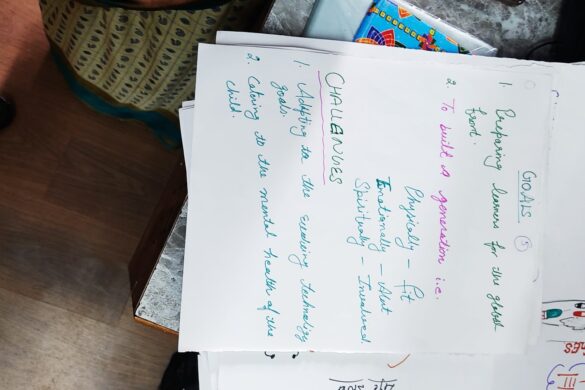 GOALS 5
1. Preparing learners for the global
front.
2. To built a generation i.e.
Physically - fit
Emotionally - Alert
Spiritually - Involved
CHALLENGES
1. Adapting to the evolving technology
goals.
2. Catering to the mental health of the
child.